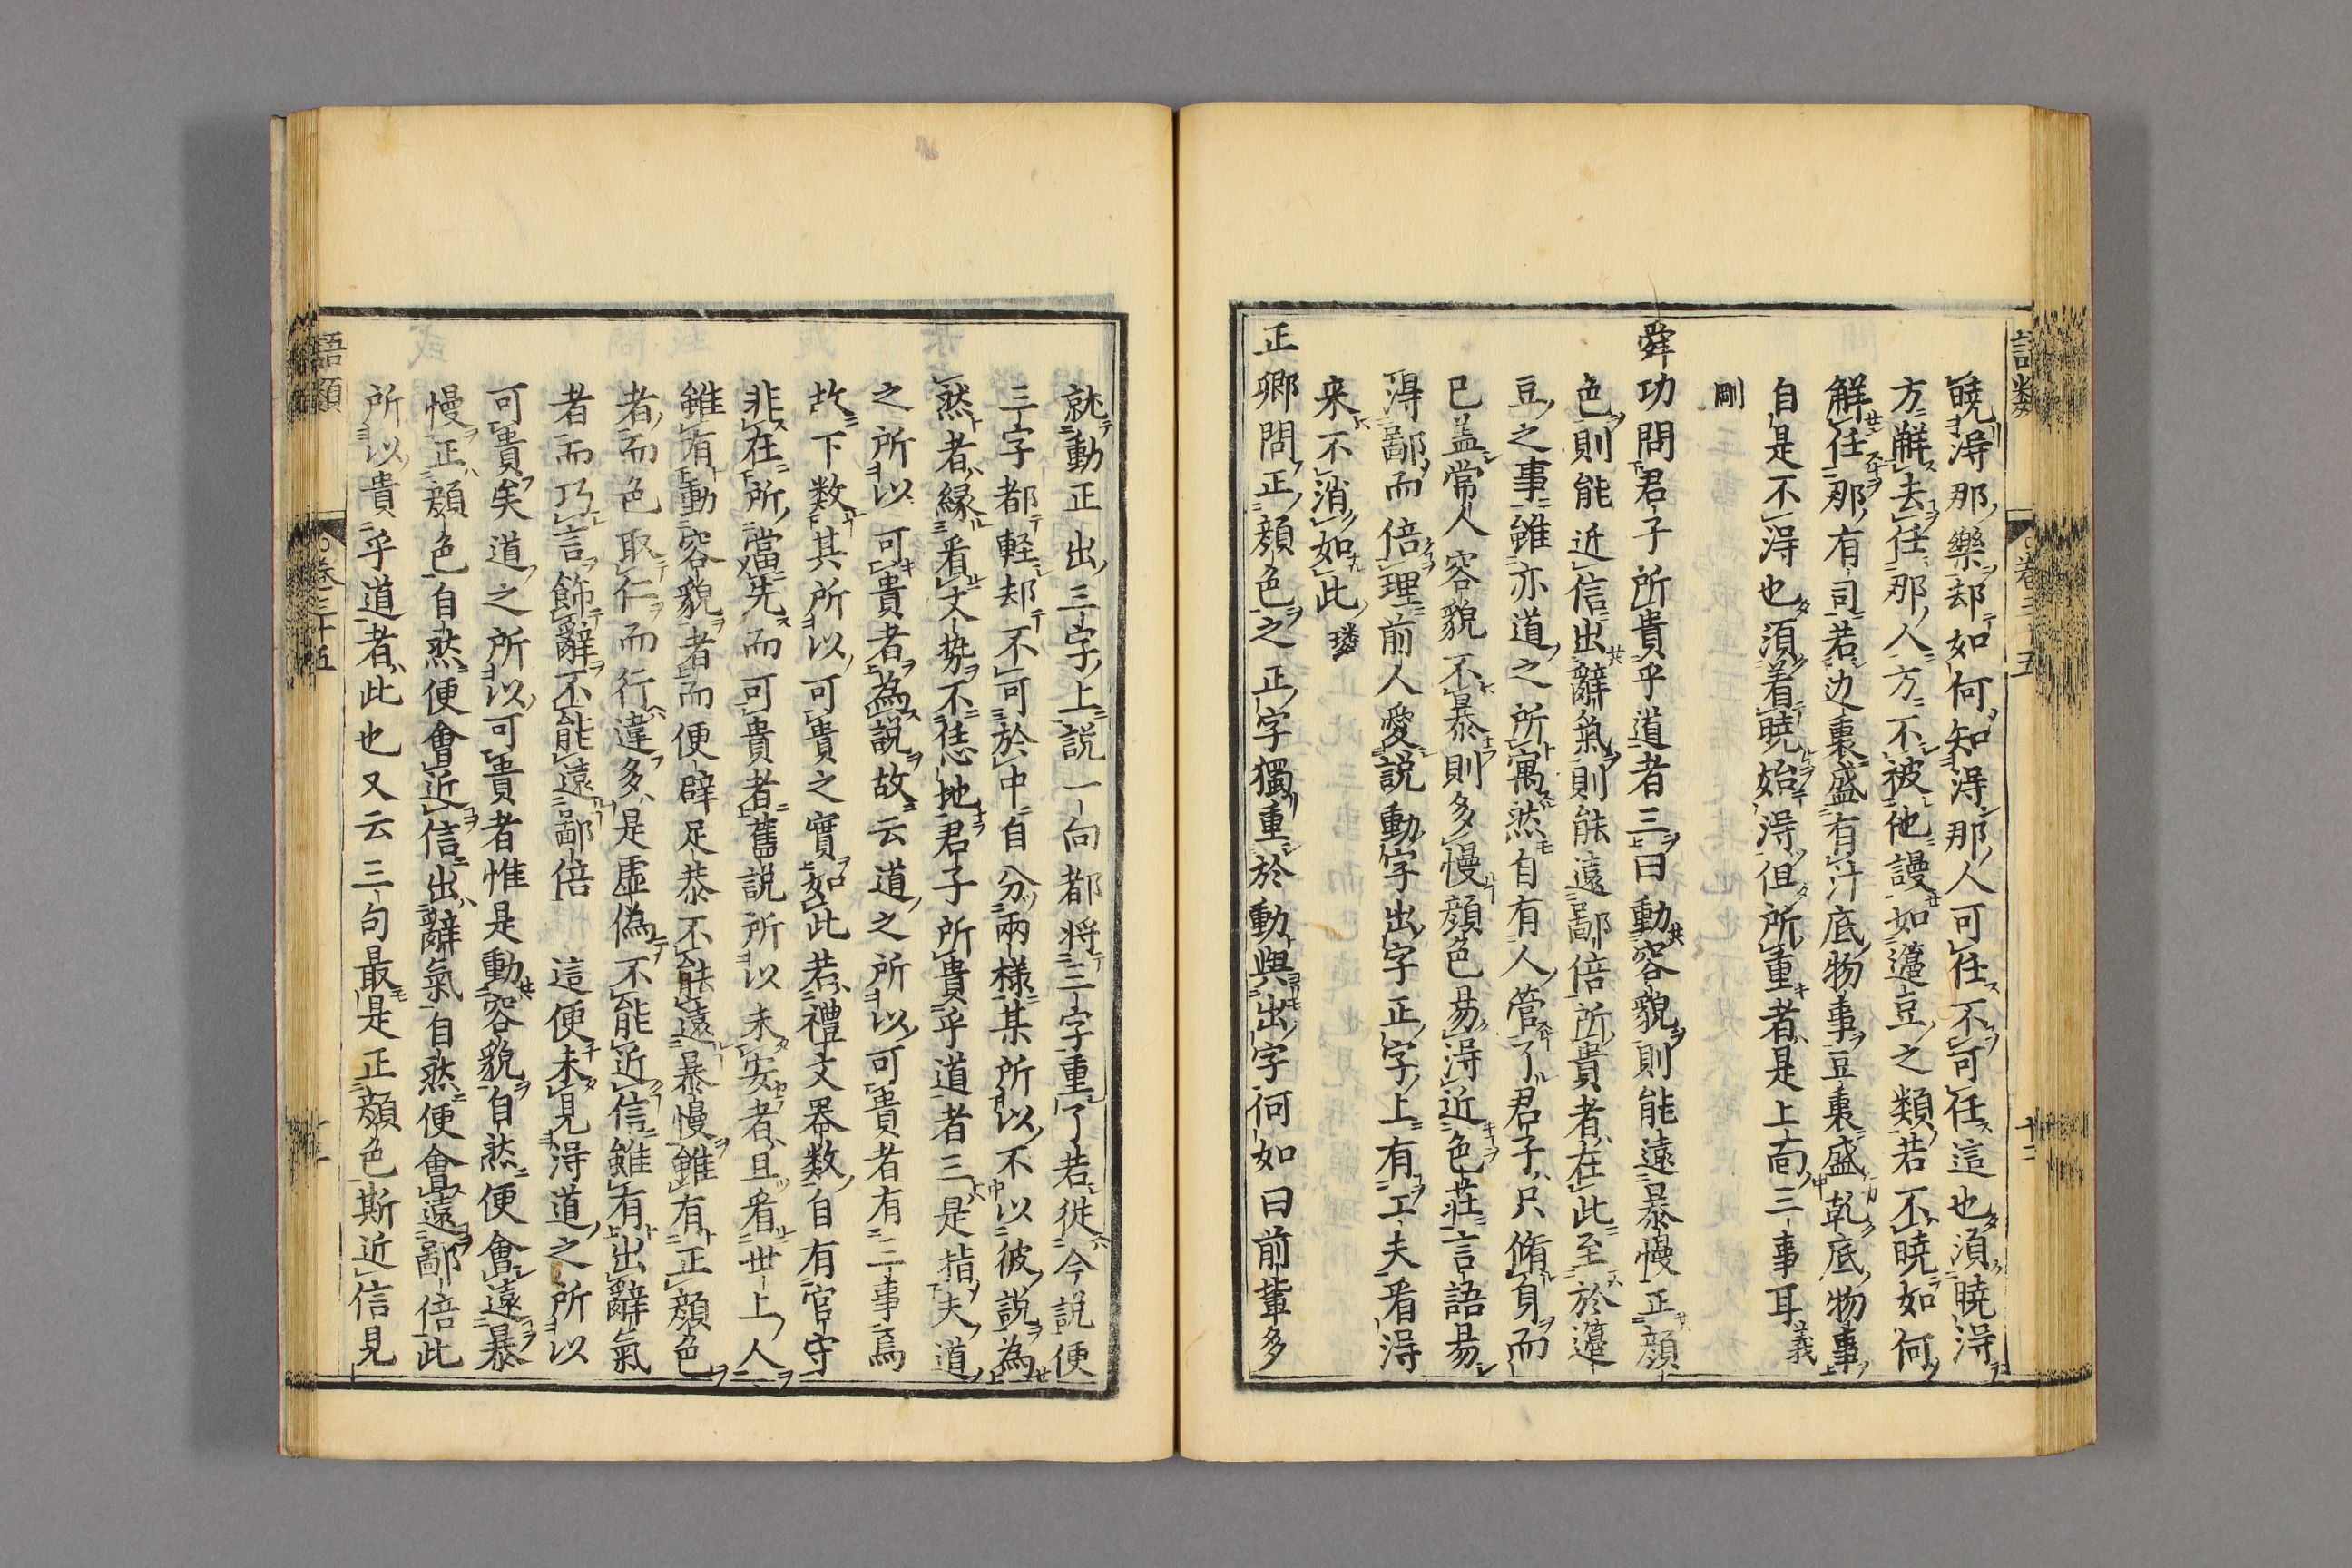 曉得那樂却如何知得那人可任不可任這也須曉得
方觧去任那人方不被他謾如籩豆之類若不曉如何
解任那有司若边裏盛有汁底物事豆裏盛乾底物事
自是不得也須着曉始得但所重者是上靣三事耳義
剛
舜功問君子所貴乎道者三曰動容貌則能遠暴慢正顔
色則能近信出辭氣則能遠鄙倍所貴者在此至於籩
豆之事雖亦道之所寓然自有人管了君子只脩身而
已盖常人容貌不暴則多慢顔色易得近色荘言語易
得鄙而倍理前人愛説動字出字正字上有工夫看得
来不消如此璘
正卿問正顔色之正字獨重於動與出字何如曰前輩多
就動正出三字上説一向都将三字重了若從今説便
三字都軽却不可於中自分兩様某所以不以彼説為
然者縁看文勢不恁地君子所貴乎道者三是指夫道
之所以可貴者為説故云道之所以可貴者有三事焉
故下数其所以可貴之實如此若禮文器数自有官守
非在所當先而可貴者舊説所以未安者且看世上人
雖有動容貌者而便辟足恭不能遠暴慢雖有正顔色
者而色取仁而行違多是虚偽不能近信雖有出辭氣
者而巧言飾辭不能遠鄙倍 這便未見得道之所以
可貴矣道之所以可貴者惟是動容貌自然便會遠暴
慢正顔色自然便會近信出辭氣自然便會遠鄙倍此
所以貴乎道者此也又云三句最是正顔色斯近信見
語類 卷三十五 十二